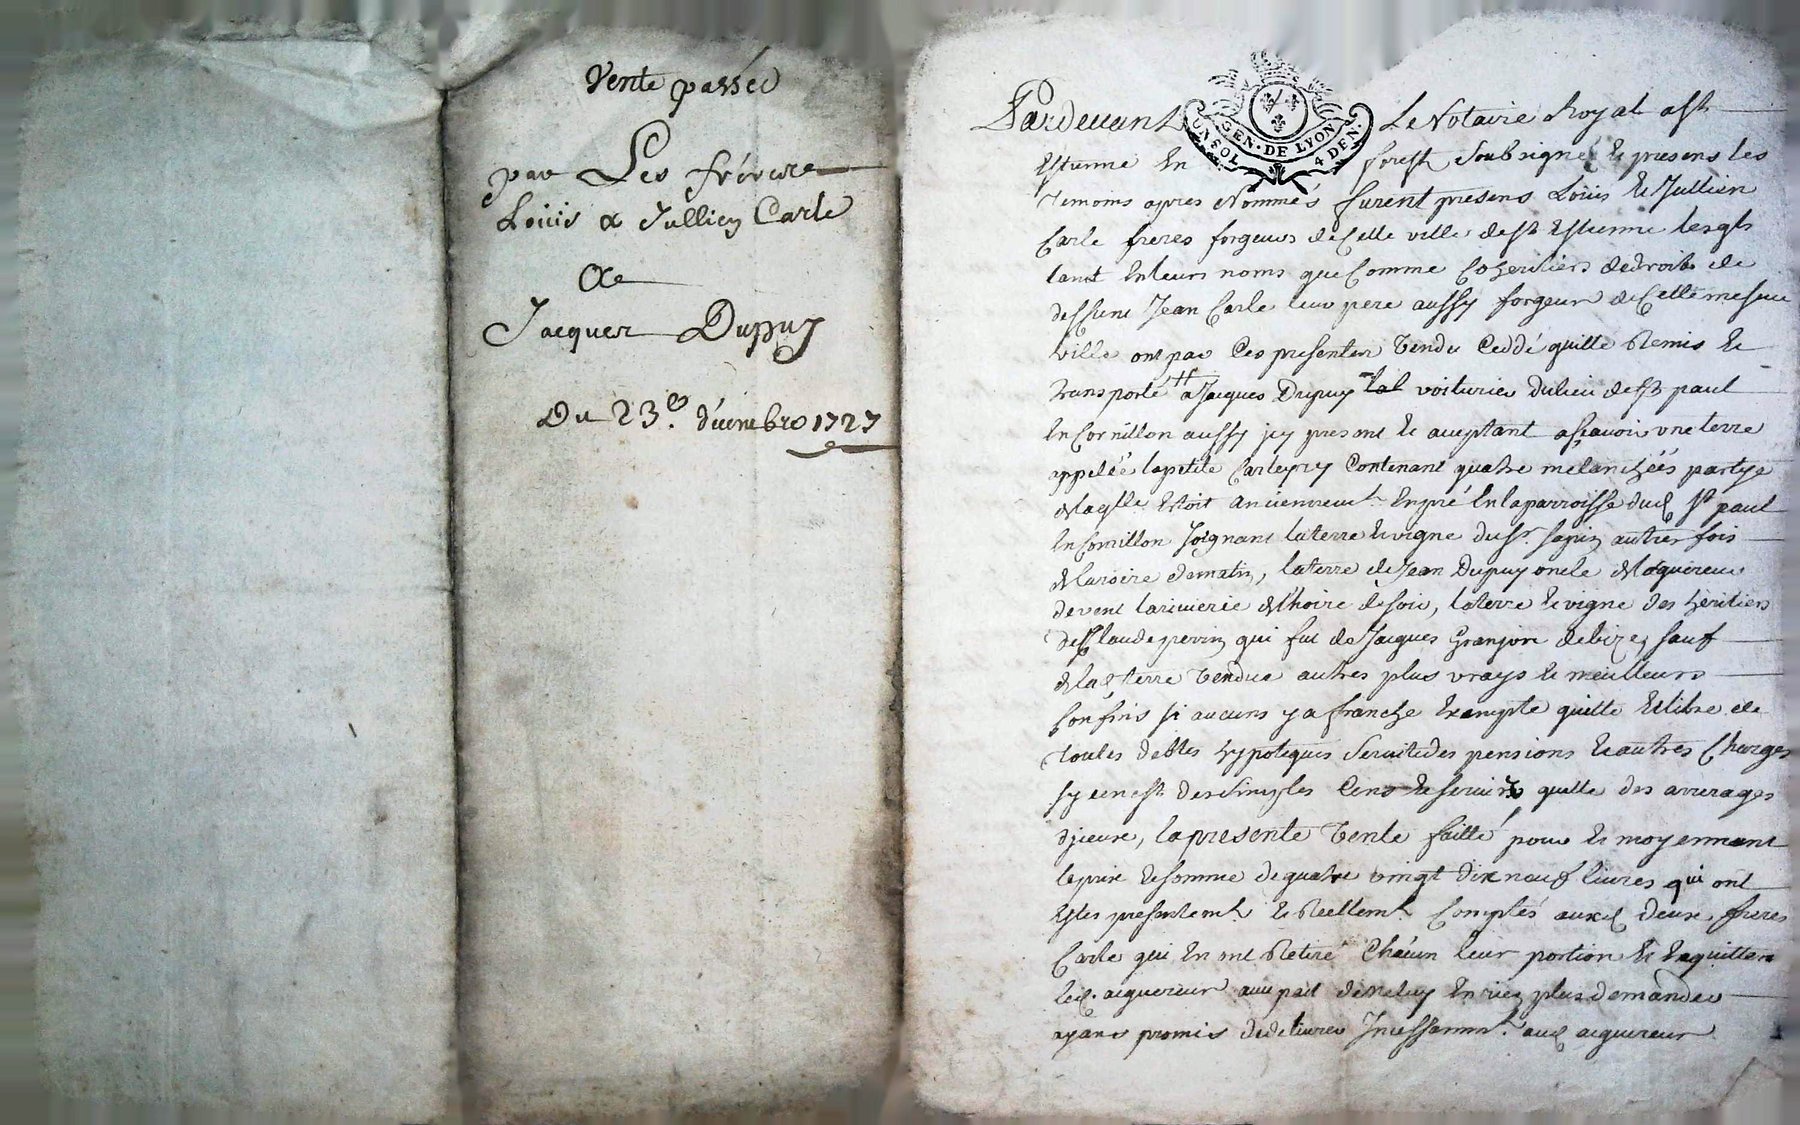 Vente passée
par Les fréres
Loüis & Jullien Carle
A
Jacques Dupuy
Du 23.e décembre 1727
Pardevant Le Notaire Royal a St
GEN. DE LYON
UN SOL 4 DEN
Estienne En forest Soubsigné & presens les
Temoins apres Nommés furent presens Loüis & Jullien
Carle freres forgeurs de Cette ville de St Estienne lesqls
tant En leurs noms que Comme Coheritiers de droit de
deffunt Jean Carle leur pere aussy forgeur de Cette mesme
ville ont par Ces presentes Vendu Ceddé quitté Remis &
transporté a Jacques Dupuy voiturier du lieu de St paul
En Cornillon aussy icy present & acceptant asçavoir une terre
appelée la petite Contenant quatre partye
De laqlle Estoit anciennemt En pré En la parroisse dud St paul
En Cornillon Joignant la terre & vigne du Sr autres fois
de matin, la terre de Jean Dupuy oncle
de vent la riviere de soir, la terre & vigne des heritiers
de Claude perrin qui fut de Jacques Granjon de bize, sauf
De lad terre Vendue autres plus vrays & meilleurs
Confins si aucuns y a franche Exempte quitte & libre de
toutes debtes hypoteques Servitudes pensions & autres Charges
sy ce nest des Simples Cens & servis quitte des arrerages
la presente Vente faitte pour & moyennant
le prix & somme de quatre vingt dix neuf livres qui ont
Estes presentemt & Reellemt Comptés auxd deux freres
Carle qui En ont Retiré Chacun leur portion & En quittent
led. acquereur avec pact de ne luy En rien plus demander
ayans promis de delivrer Incessammt aud acquereur